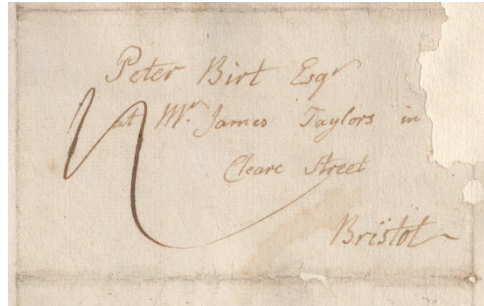 Peter Birt Esqr
at Mr. James Taylors in
Cleare Street
Bristol